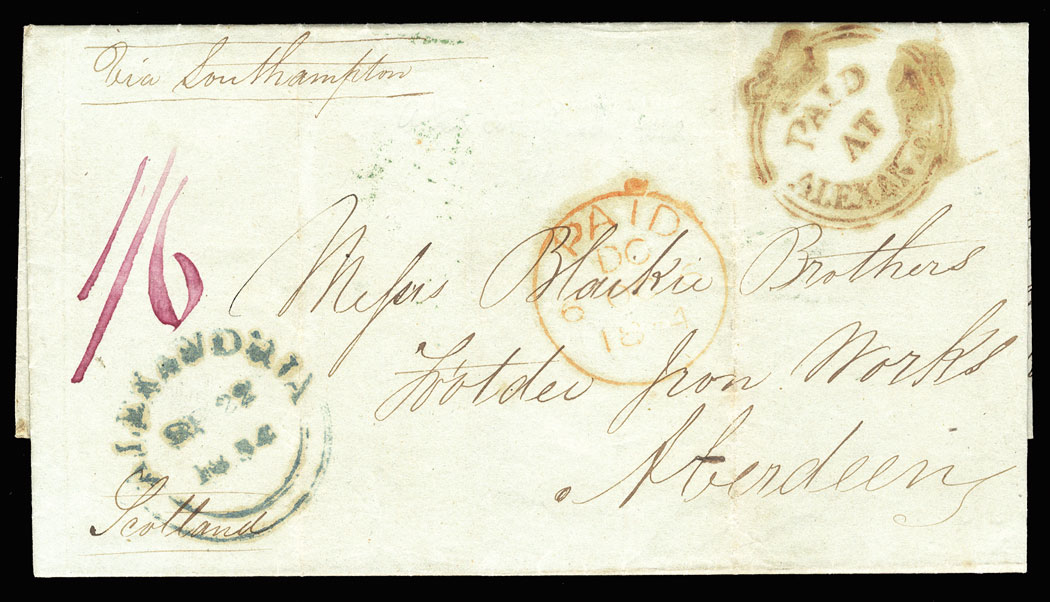 Via Southampton
PAID
AT
ALEXAN
1/6
PAID
DC
6
18 4
Messrs Blaikie Brothers
Footdee Iron Works
Aberdeen
ALEXANDRIA
22
1854
Scotland